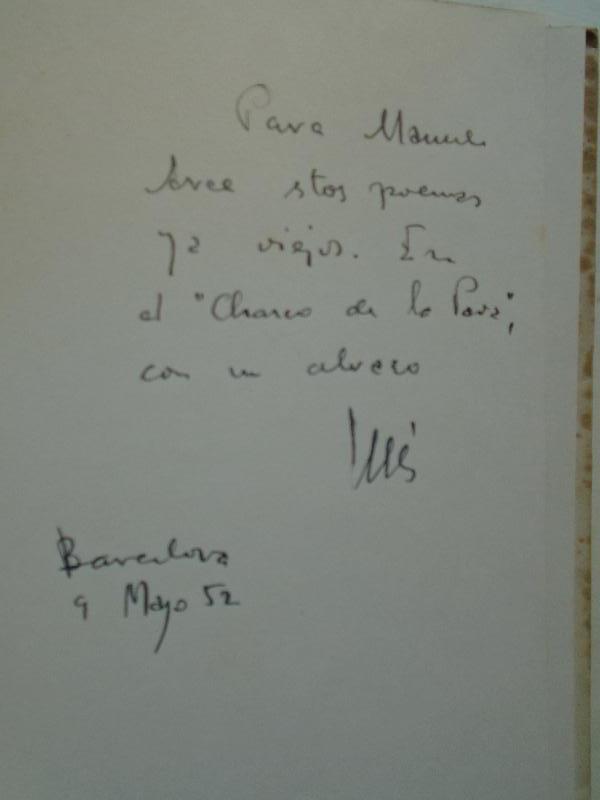 Para Manuel
Arce estos poemas
ya viejos. En
el "Charco de la Pava",
con un abrazo
Barcelona
9 Mayo 52